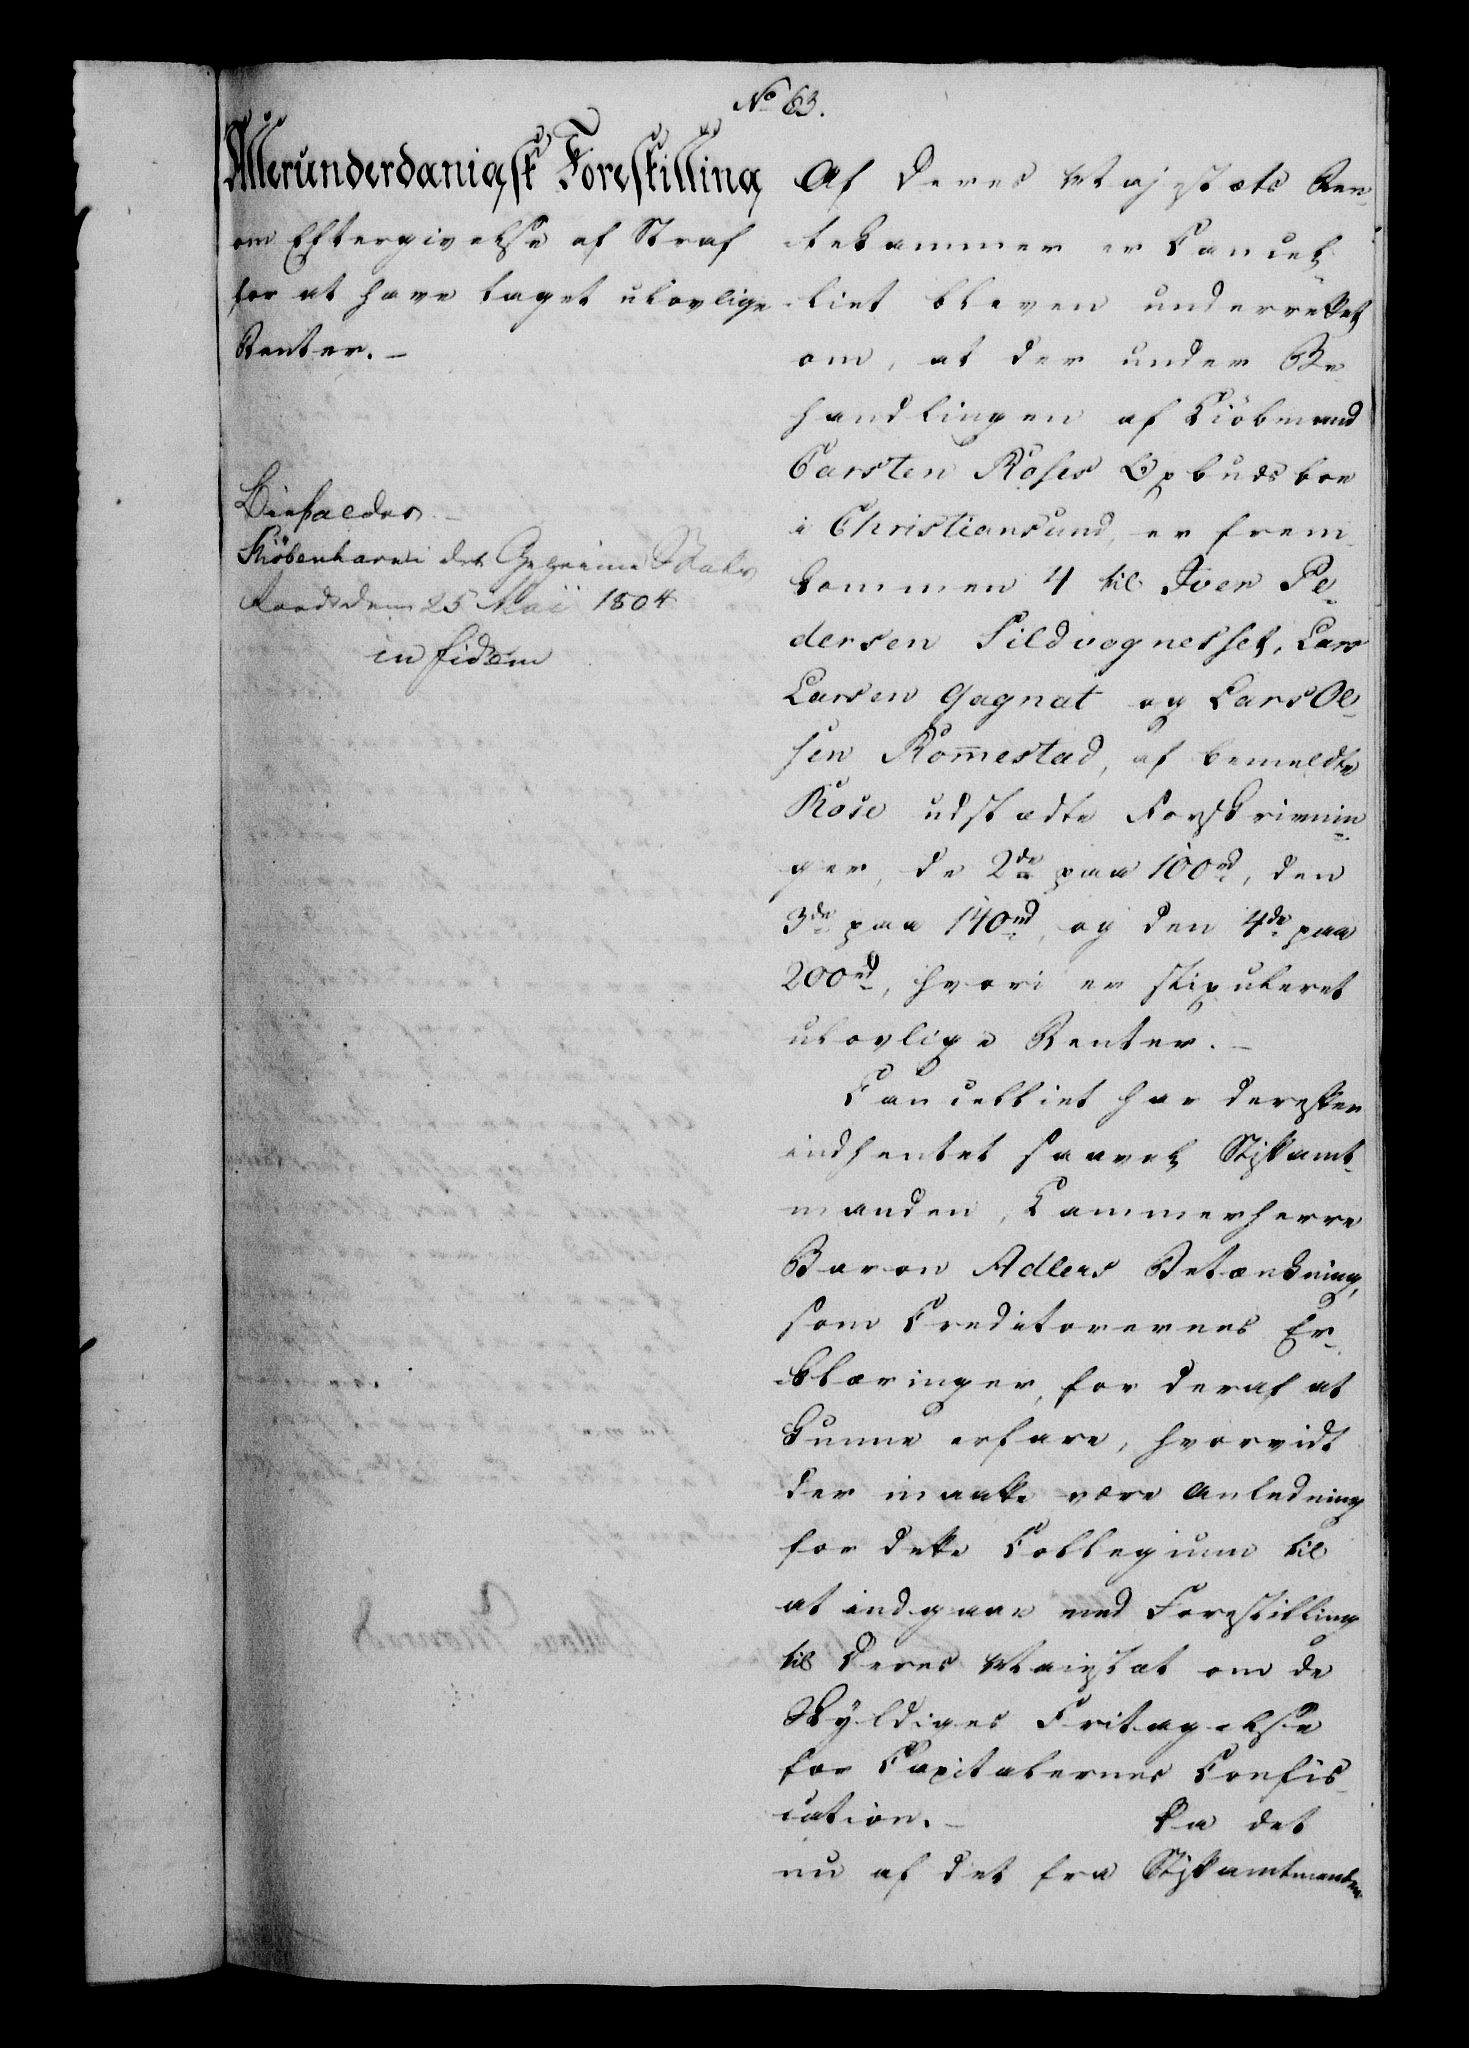 No 63.
Allerunderdanigsk Forestilling
om Eftergivelse af Straf
for at have taget ulovlige
Renter. –
Bifaldes. –
Kiöbenhavn i det Geheime Stats
Raad dem 25 Maii 1804
in fidem
Af Deres Majestæts Ren-
tekammer er Cancel-
liet bleven underrettet
om, at der under Be-
handlingen af Kiöbmand
Carsten Roses Opbudsboe
i Christiansund, er frem-
kommen 4 til Iver Pe-
dersen Sildvognesset, Lars
Larsen Gagnat og Lars Ol-
sen Rom̅estad, af bemeldte
Rose udstædte Forskrivnin-
ger, de 2de paa 100rd, den
3de paa 140rd, og den 4de paa
200rd, hvori er stipuleret
ulovlige Renter. –
Cancelliet har derefter
indhentet saavel Stiftamt-
manden, Kammerherre
Baron Adlers Betænkning,
som Creditorernes Er-
klæringer, for deraf at
kunne erfare, hvorvidt
der maatte være Anledning
for dette Collegium til
at indgaae med Forestilling
til Deres Majestæt om de
Skyldiges Fritagelse
for Capitalernes Confis-
cation. – Da det
nu af det fra Stiftamtmanden